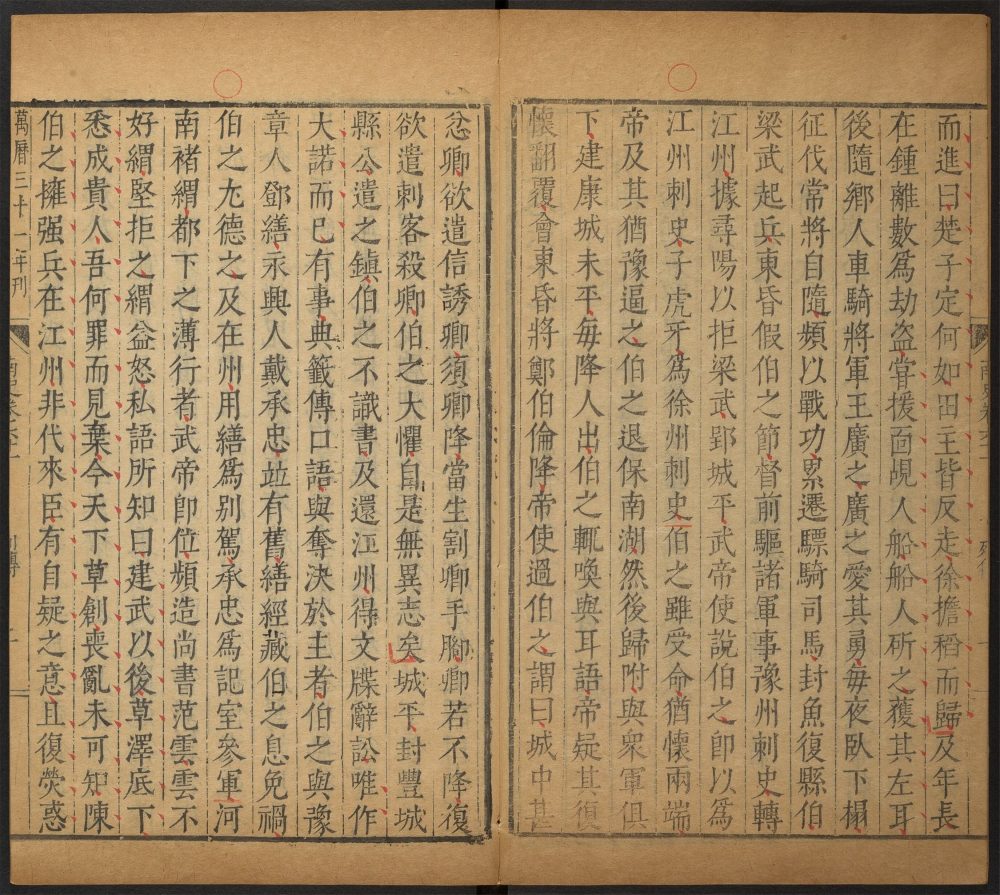 而進曰楚子定何如田主皆反走徐擔稻而歸及年長
在鍾離數爲劫盜甞援面覘人船船人斫之獲其左耳
後隨鄉人車騎將軍王廣之廣之愛其勇每夜臥下榻
征伐常將自隨頻以戰功累遷驃騎司馬封魚復縣伯
梁武起兵東昏假伯之節督前驅諸軍事豫州刺史轉
江州據尋陽以拒梁武郢城平武帝使說伯之卽以爲
江州刺史子虎牙爲徐州刺史伯之雖受命猶懷兩端
帝及其猶豫逼之伯之退保南湖然後歸附與衆軍俱
下建康城未平每降人出伯之輒喚與耳語帝疑其復
懷翻覆會東昏將鄭伯倫降帝使過伯之謂曰城中甚
忿卿欲遣信誘卿須卿降當生割卿手腳卿若不降復
欲遣刺客殺卿伯之大懼自是無異志矣城平封豐城
縣公遣之鎮伯之不識書及還江州得文牒辭訟唯作
大諾而已有事典籤傳口語與奪決於主者伯之與豫
章人鄧繕永興人戴承忠竝有舊繕經藏伯之息免禍
伯之尤德之及在州用繕爲别駕承忠爲記室參軍河
南褚緭都下之薄行者武帝卽位頻造尚書范雲雲不
好緭堅拒之緭益怒私語所知曰建武以後草澤底下
悉成貴人吾何罪而見棄今天下草創喪亂未可知陳
伯之擁强兵在江州非代來臣有自疑之意且復熒惑
萬曆三十一年刊